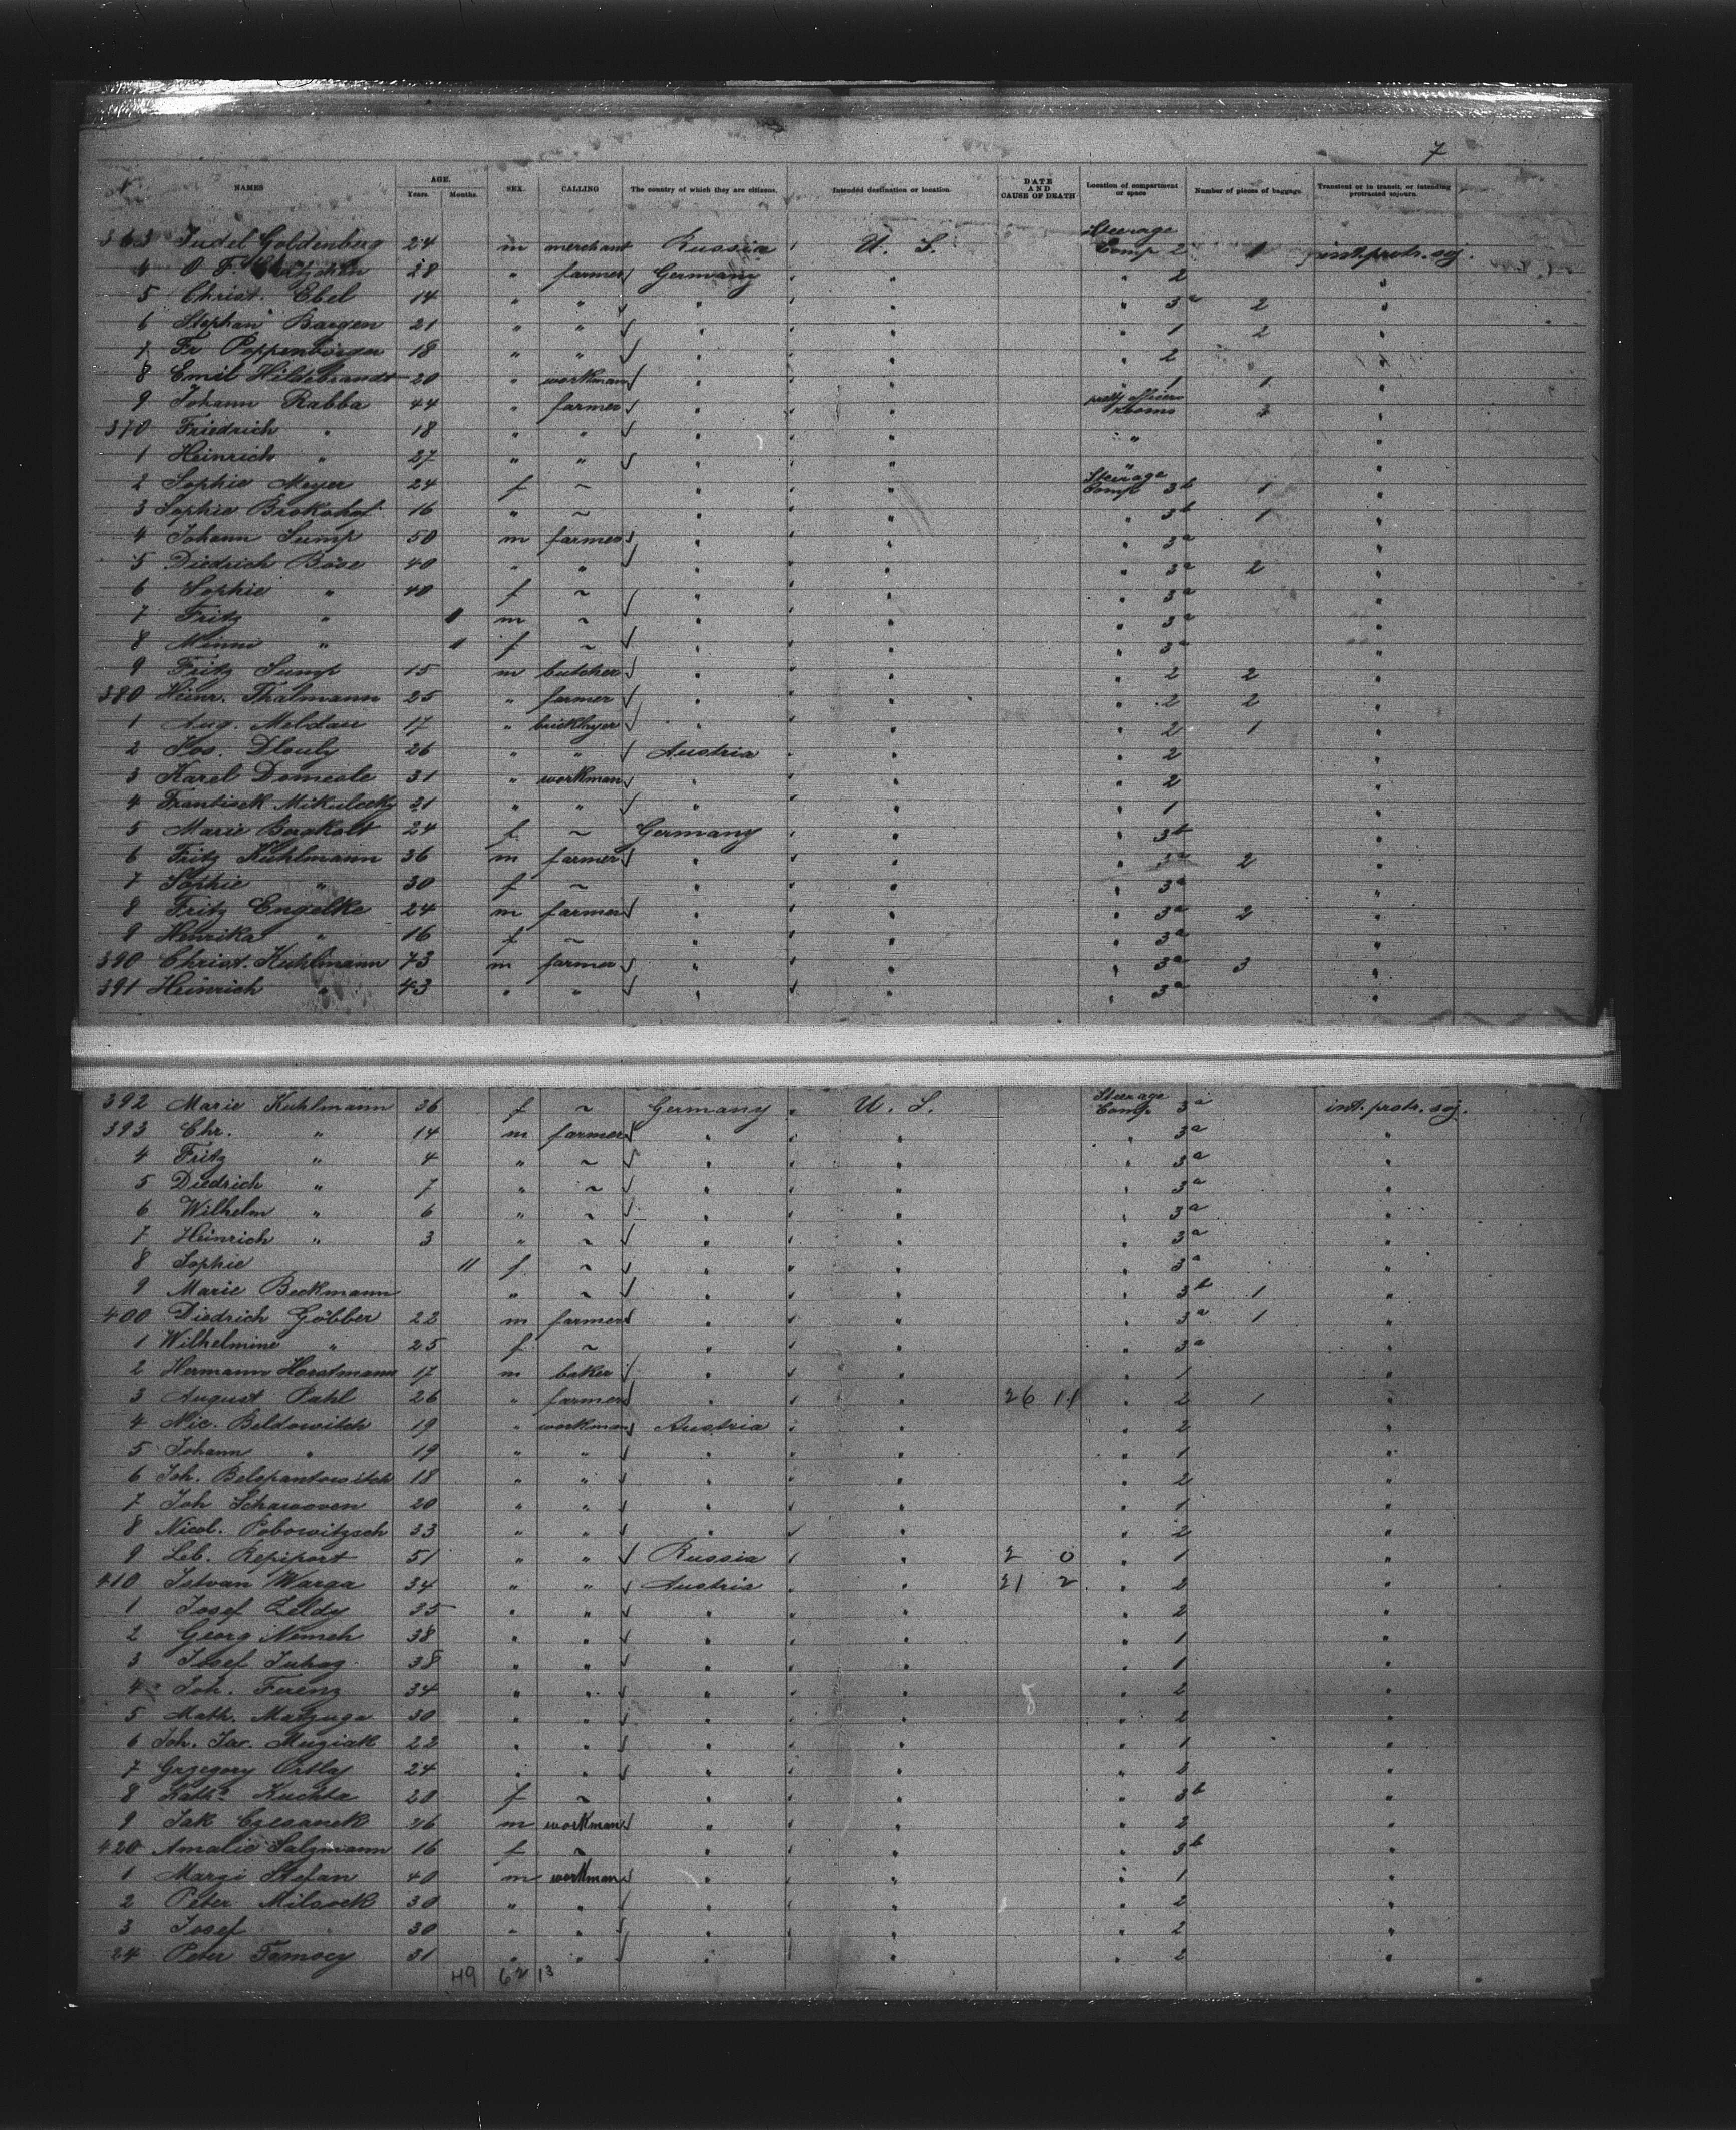 7
NAMES AGE. Years. Months SEX. CALLING The country of which they are citizens. Intended destination or location. DATE AND CAUSE OF DEATH Location of compartment or space Number of pieces of baggage. Transient or in transit, or intending protracted sojourn.
363 Judel Goldenberg 24 m merchant Russia U. S. Steerage Comp 2 1 int. protr. soj.
4 O. F. 28 " farmer Germany " " 2 "
5 Christ. Ebel 14 " " " " " 3a 2 "
6 Stephan Bargen 21 " " " " " 1 2 "
7 Fr Poppenborger 18 " " " " " 2 "
8 Emil Hildebrandt 20 " workman " " " 1 1 "
9 Johann Rabba 44 " farmer " " officers rooms "
370 Friedrich " 18 " " " " " "
1 Heinrich " 27 " " " " " "
2 Sophie Meyer 24 f ~ " " Steerage Comp 3b 1 "
3 Sophie Brokahof 16 " ~ " " " 3b 1 "
4 Johann Sump 50 m farmer " " " 3a "
5 Diedrich Böse 40 " " " " " 3a 2 "
6 Sophie " 40 f ~ " " " 3a "
7 Fritz " m ~ " " " 3a "
8 Minna " f ~ " " " 3a "
9 Fritz Sump 15 m butcher " " " 2 2 "
380 Heinr. Thalmann 25 " farmer " " " 2 2 "
1 Aug. Meldau 17 " bricklayer " " " 2 1 "
2 Jos. Dlouly 26 " " Austria " " 2 "
3 Karel Domeole 31 " workman " " " 2 "
4 Frantisek Mikulecky 31 " " " " " 1 "
5 Marie Bergholt 24 f ~ Germany " " 3b "
6 Fritz Kuhlmann 36 m farmer " " " 3a 2 "
7 Sophie " 30 f ~ " " " 3a "
8 Fritz Engelke 24 m farmer " " " 3a 2 "
9 Henrika " 16 f ~ " " " 3a "
390 Christ. Kuhlmann 73 m farmer " " " 3a 3 "
391 Heinrich " 43 " " " " " 3a "
392 Marie Kuhlmann 36 f ~ Germany U. S. Steerage Comp. 3a int. protr. soj.
393 Chr. " 14 m farmer " " " 3a "
4 Fritz " 4 " ~ " " " 3a "
5 Diedrich " 7 " ~ " " " 3a "
6 Wilhelm " 6 " ~ " " " 3a "
7 Heinrich " 3 " ~ " " " 3a "
8 Sophie 11 f ~ " " " 3a "
9 Marie Beckmann " ~ " " " 3b 1 "
400 Diedrich Göbber 22 m farmer " " " 3a 1 "
1 Wilhelmine " 25 f ~ " " " 3a "
2 Hermann Horstmann 17 m baker " " " 1 "
3 August Pahl 26 " farmer " " 26 11 " 2 1 "
4 Nic. Beldowitch 19 " workman Austria " " 2 "
5 Johann " 19 " " " " " 1 "
6 Joh. Belopantowitch 18 " " " " " 2 "
7 Joh Schawoven 20 " " " " " 1 "
8 Nicol. Pobowitzsch 33 " " " " " 2 "
9 Leb. Repiport 51 " " Russia " 2 0 " 1 "
410 Istvan Warga 34 " " Austria " 21 2 " 2 "
1 Josef Zeldy 35 " " " " " 2 "
2 Georg Nemeh 38 " " " " " 1 "
3 Josef Juhaz 38 " " " " " 1 "
4 Joh. Ferenz 34 " " " " " 2 "
5 Math. Matzuga 30 " " " " " 2 "
6 Joh. Jav. Muziak 22 " " " " " 1 "
7 Grzegory 24 " " " " " 2 "
8 Katha Kuchta 20 f ~ " " " 3b "
9 Jak Czesanek 26 m workman " " " 2 "
420 Amalie Salzmann 16 f ~ " " " 3b "
1 Margi Stefan 40 m workman " " " 1 "
2 Peter Milsock 30 " " " " " 2 "
3 Josef 30 " " " " " 2 "
24 Peter Tomocy 31 " " " " " 2 "
49 62 13